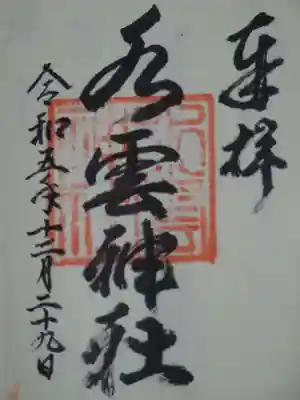 奉拝
雲神社
令和五年十二月二十九日